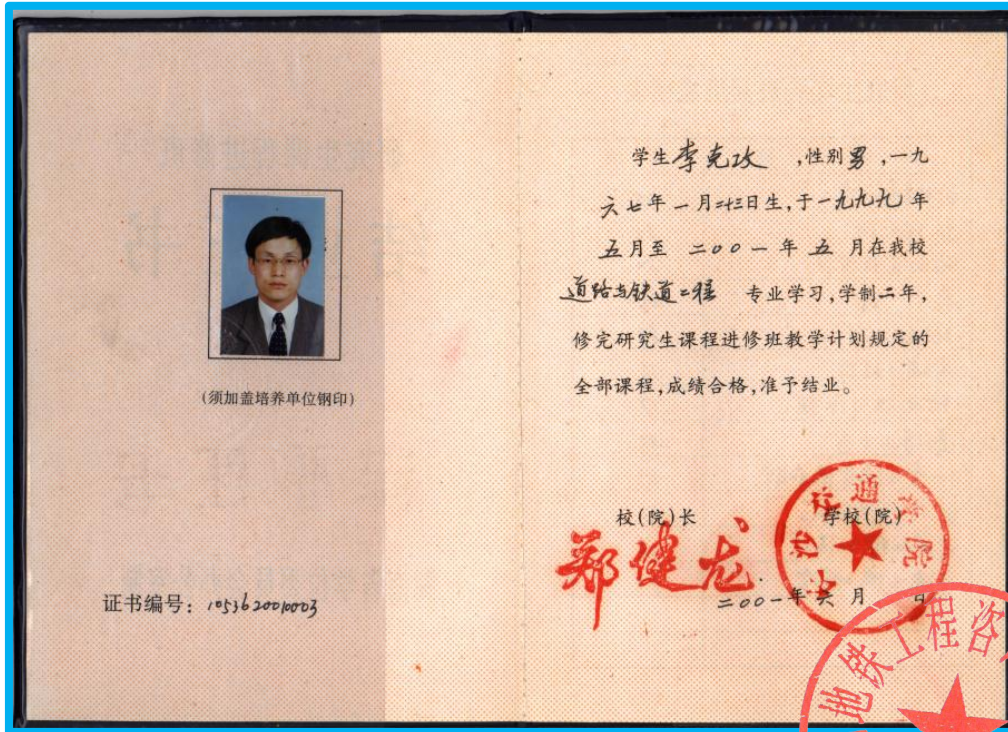 (须加盖培养单位钢印)
证书编号：1053620010003
学生李克攻，性别男，一九
六七年一月二十三日生，于一九九九年
五月至二〇〇一年五月在我校
道路与铁道工程 专业学习，学制二年，
修完研究生课程进修班教学计划规定的
全部课程，成绩合格，准予结业。
校(院)长 学校(院)
郑健龙
长沙交通学院
二〇〇一年六月 日
地铁工程咨